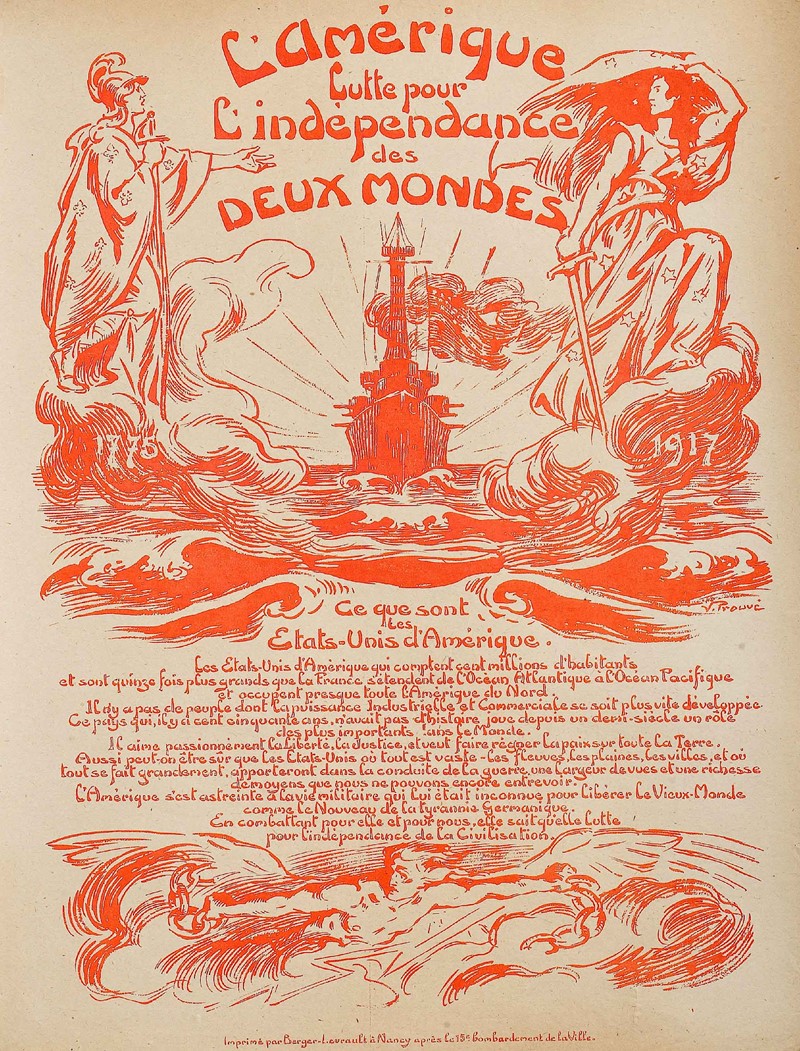 L'Amérique
Lutte pour
L'indépendance
des
DEUX MONDES
1775
1917
V. Prouvé
Ce que sont
Les
Etats-Unis d'Amérique.
Les Etats-Unis d'Amérique qui comptent cent millions d'habitants
et sont quinze fois plus grands que la France s'étendent de l'Océan Atlantique à l'Océan Pacifique
et occupent presque toute l'Amérique du Nord.
Il n'y a pas de peuple dont la puissance Industrielle et Commerciale se soit plus vite développée.
Ce pays qui, il y a cent cinquante ans, n'avait pas d'histoire, joue depuis un demi-siècle un rôle
des plus importants dans le Monde.
Il aime passionnément la Liberté, la Justice, et veut faire régner la paix sur toute la Terre.
Aussi peut-on être sur que les Etats-Unis où tout est vaste - les fleuves, les plaines, les villes, et où
tout se fait grandement, apporteront dans la conduite de la guerre, une largeur de vues et une richesse
de moyens que nous ne pouvons encore entrevoir.
L'Amérique s'est astreinte à la vie militaire qui lui était inconnue pour libérer le Vieux-Monde
comme le Nouveau de la tyrannie Germanique.
En combattant pour elle et pour nous, elle sait qu'elle lutte
pour l'indépendance de la Civilisation.
Imprimé par Berger-Levrault à Nancy après le 15e bombardement de la Ville.